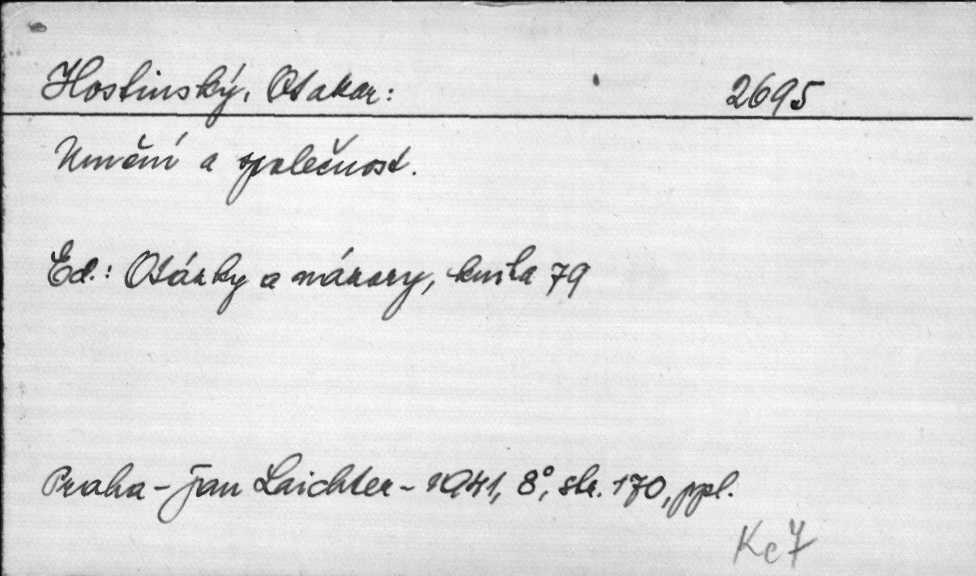 Hostinský, Otakar: 2695
Umění a společnost.
Ed.: Otázky a názory, kniha 79
Praha - Jan Laichter - 1941, 8°, str. 170, ppl.
Kc7